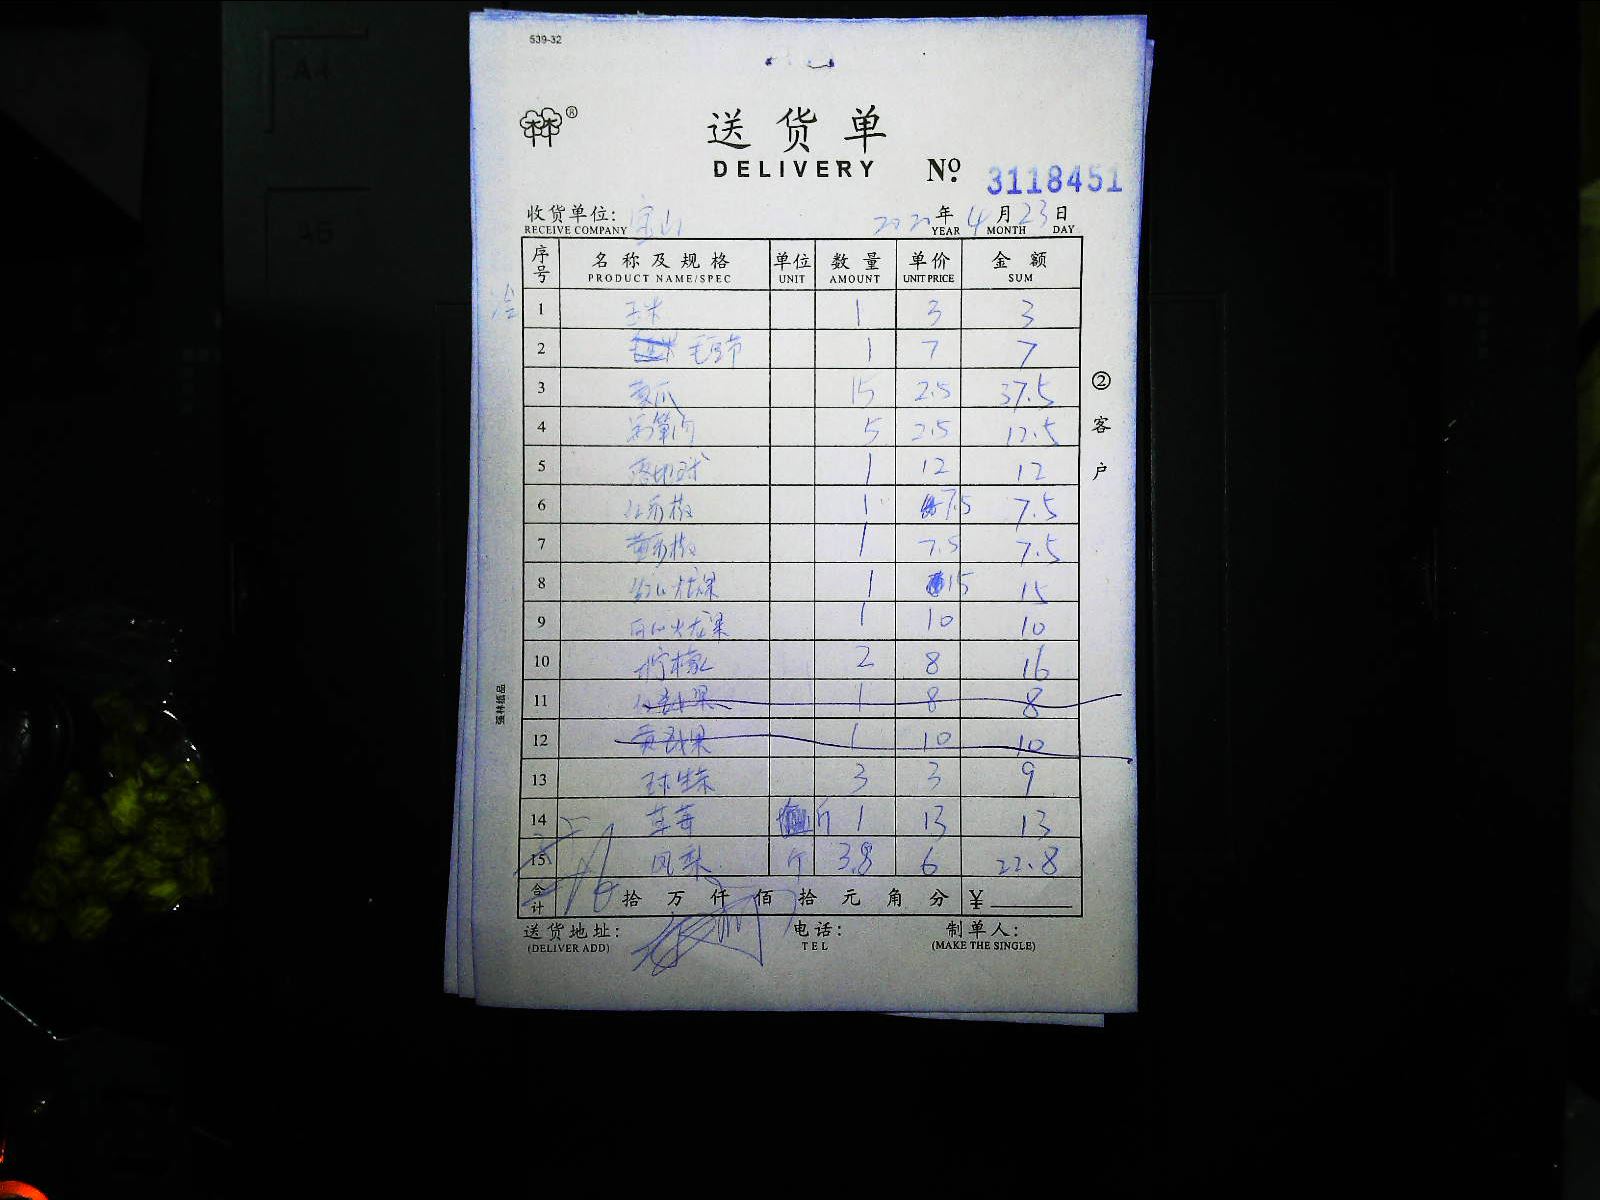 539-32
送货单
DELIVERY No. 3118451
收货单位: 宝山 年 4 月 23 日
RECEIVE COMPANY YEAR MONTH DAY
序号 名称及规格 单位 数量 单价 金额
PRODUCT NAME/SPEC UNIT AMOUNT UNIT PRICE SUM
1 玉米 1 3 3
2 毛豆节 1 7 7
3 15 2.5 37.5
4 5 2.5 12.5
5 1 12 12
6 1 7.5 7.5
7 1 7.5 7.5
8 红心火龙果 1 15 15
9 白心火龙果 1 10 10
10 柠檬 2 8 16
11 1 8 8
12 1 10 10
13 球生菜 3 3 9
14 草莓 斤 1 13 13
15 凤梨 斤 3.8 6 22.8
合计 拾 万 仟 佰 拾 元 角 分 ¥
送货地址: 电话: 制单人:
(DELIVER ADD) TEL (MAKE THE SINGLE)
② 客户
强林纸品